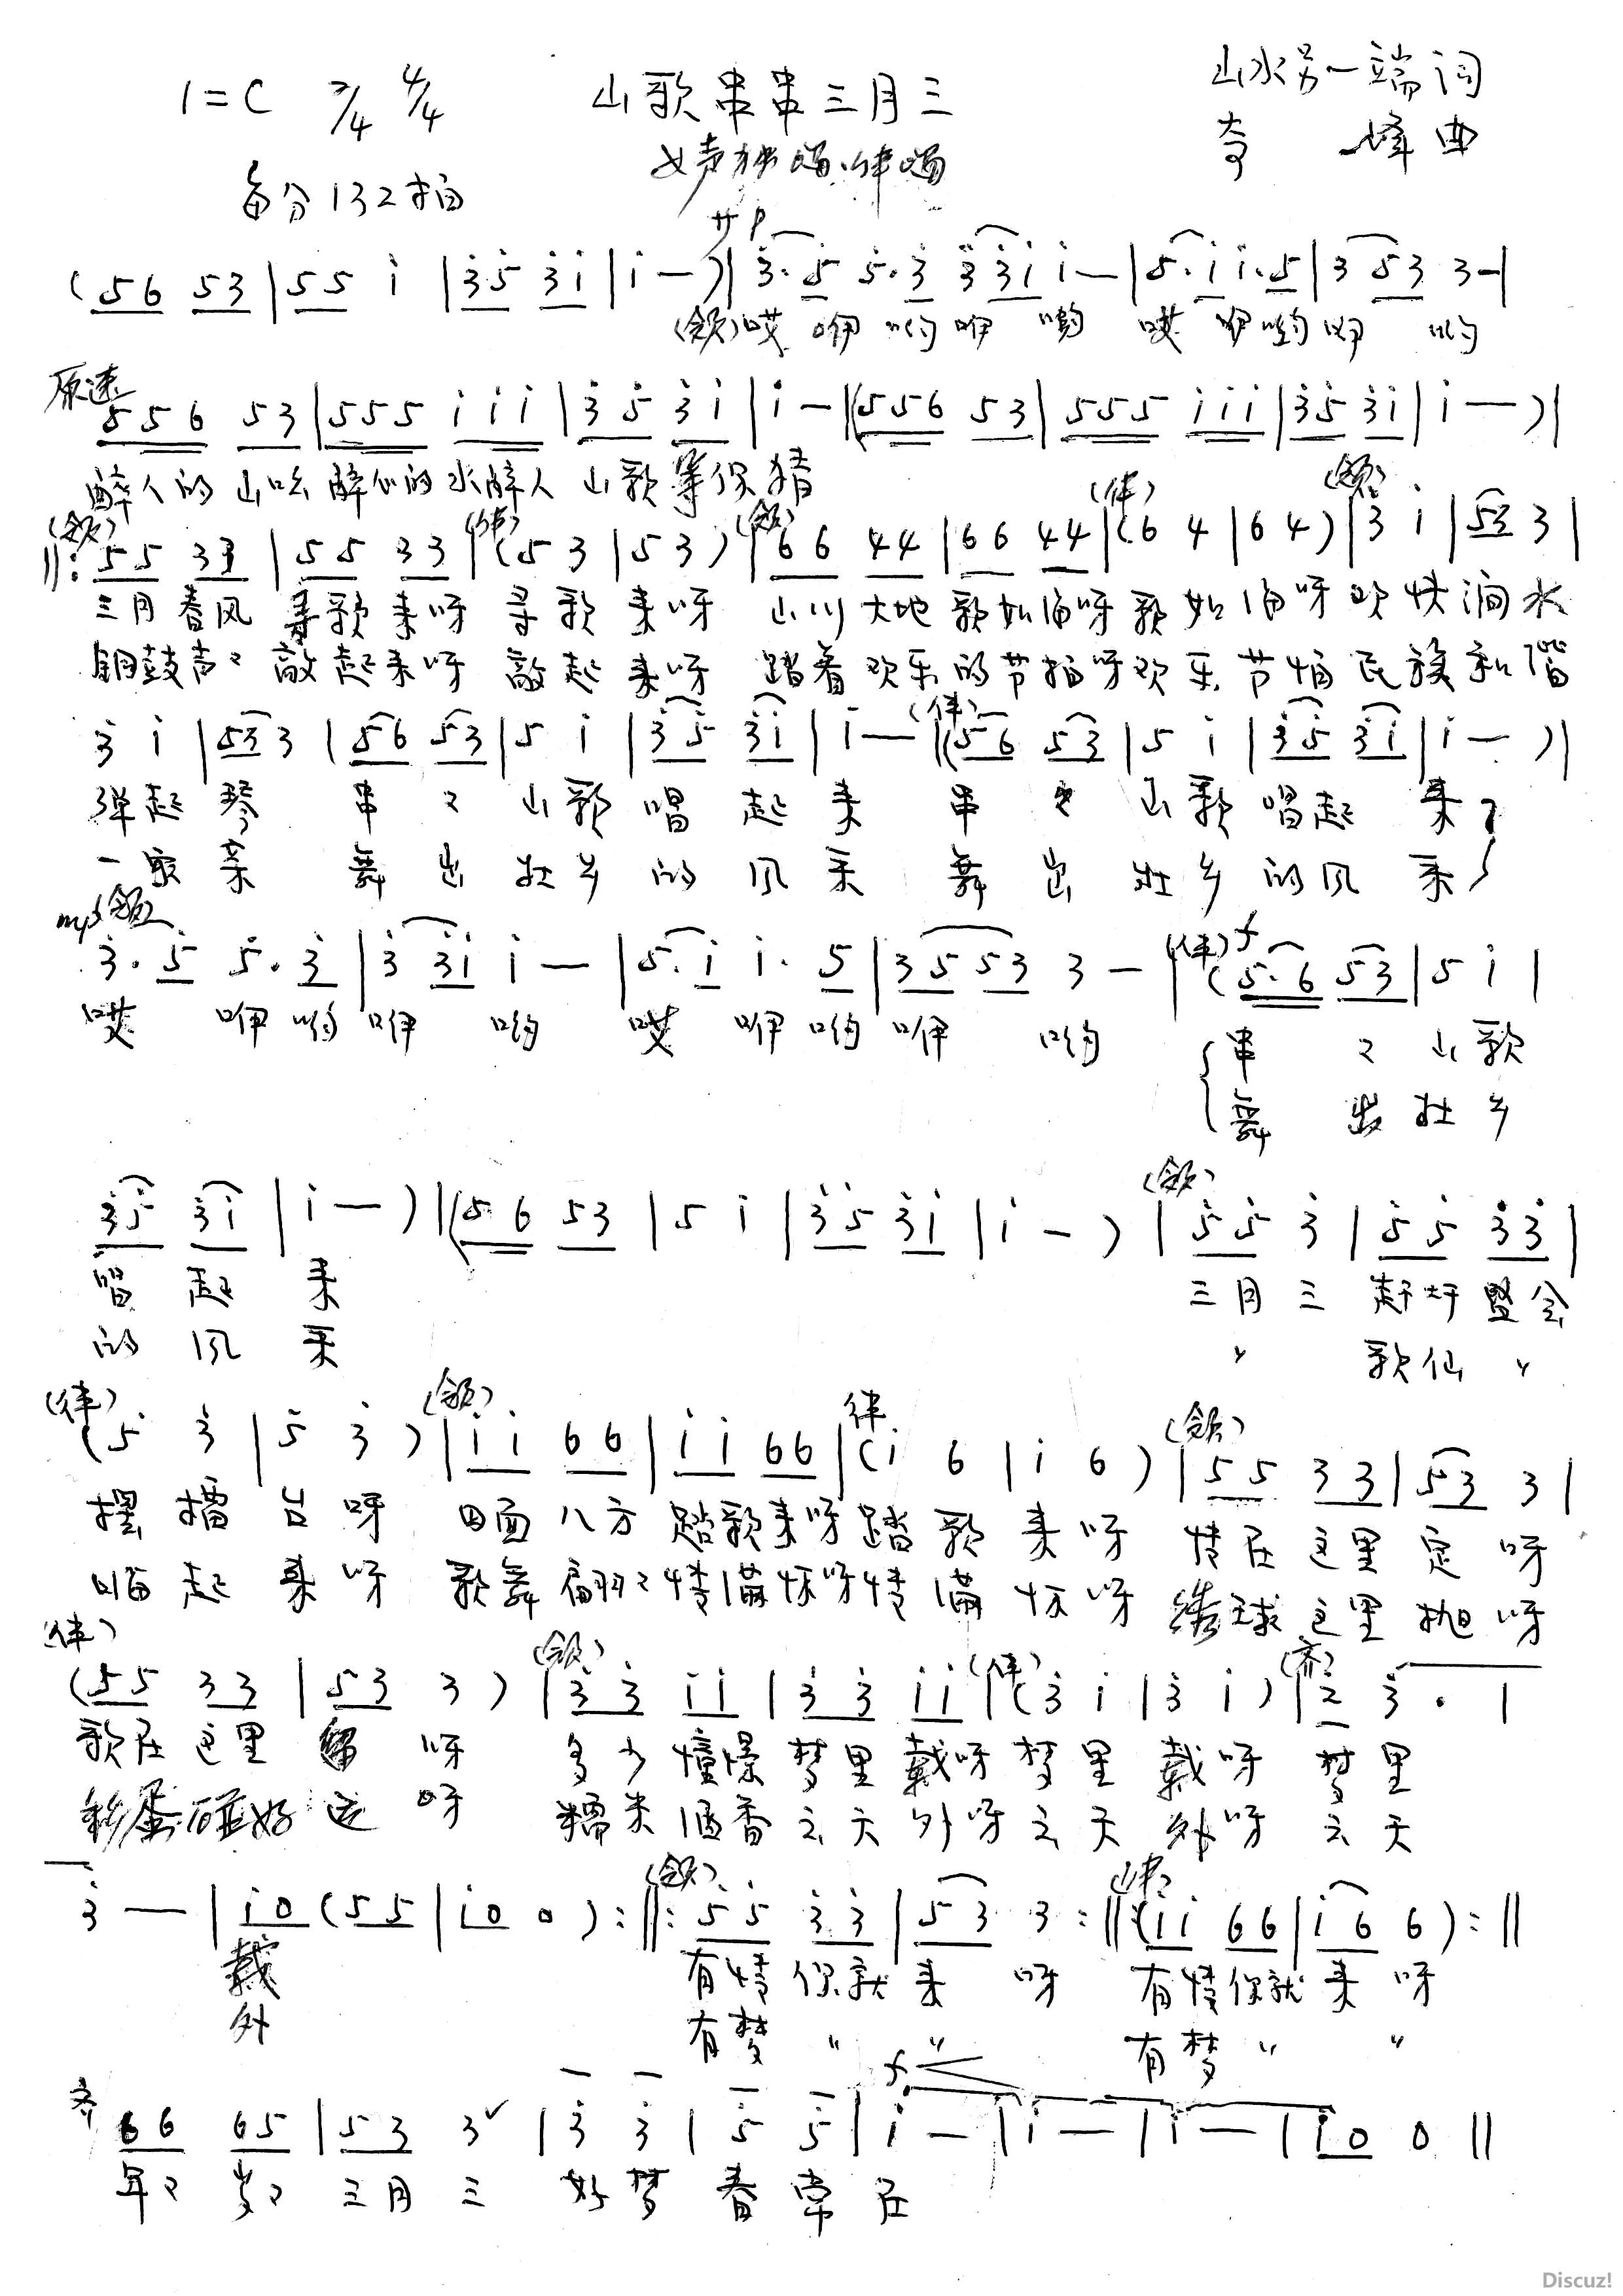 1=C 2/4 4/4 山歌串串三月三 山水另一端词
女声独唱.伴唱 李 峰曲
每分132拍
サ P
(56 53|55 i|35 3i|i —)|3·5 5·3 3 3i i—|5·i i·5|3 53 3—|
(领)哎 咿哟咿 哟 哎 咿哟咿 哟
原速
556 53|555 iii|35 3i|i —|(556 53|555 iii|35 3i|i —)|
醉人的山哈醉人的水醉人 山歌等你猜
(领) (伴) (领) (伴) (领)
‖:55 33|55 33|(53|53)|66 44|66 44|(64|64)|3 i|53 3|
三月春风 寻歌来呀 寻歌 来呀 山川大地 歌如海呀歌如海呀欢快涧水
铜鼓声々 敲起来呀 敲起 来呀 踏着欢乐的节拍呀欢乐节拍民族和谐
(伴)
3 i|53 3|56 53|5 i|35 3i|i—|(56 53|5 i|35 3i|i —)|
弹起 琴 串 々 山歌 唱 起 来 串 々 山歌 唱起 来
一家亲 舞 出 壮乡 的 风 采 舞 出 壮乡 的风 采
mp 领 (伴) f
3·5 5·3|3 3i i —|5·i i·5|35 53 3 —|(5·6 53|5 i|
哎 咿哟咿 哟 哎 咿哟咿 哟 串 々 山歌
舞 出 壮乡
(领)
35 3i|i —)|(56 53|5 i|35 3i|i —)|55 3|55 33|
唱 起 来 三月三 赶圩 竖会
的 风 采 〃 歌仙 〃
(伴) (领) 伴 (领)
(5 3|5 3)|ii 66|ii 66|(i 6|i 6)|55 33|53 3|
摆 擂 台 呀 四面八方 踏歌来呀踏歌 来呀 情在这里 定 呀
唱 起 来 呀 歌舞翩々情满怀呀情满 怀呀 绣球这里 抛呀
(伴) (领) (伴) (齐)
(55 33|53 3)|33 ii|33 ii|(3 i|3 i)|2 3·|
歌在这里 留 呀 多少憧憬 梦里戴呀梦里 戴呀 梦里
彩蛋碰好运 呀 糯米酒香云天外呀云天 外呀 云天
(领) (伴)
3 —|i0 (55|i0 0):‖:55 33|53 3:‖:(ii 66|i6 6):‖
戴 有情你就来 呀 有情你就来 呀
外 有梦 〃 〃 有梦 〃 〃
f
齐 66 65|53 3ˇ|3 3|5 5|i —|i —|i —|i0 0‖
年々 岁々 三月三 好梦 春常在
Discuz!